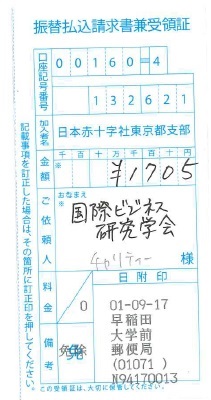 振替払込請求書兼受領証
口座記号番号
00160=4
132621
加入者名
日本赤十字社東京都支部
金額
千百十万千百十円
¥1705
ご依頼人
おなまえ
※
国際ビジネス
研究学会
チャリティー
様
料金
0
日附印
01-09-17
早稲田
大学前
郵便局
(01071 )
N94170013
備考
免除
この受領証は、大切に保管してください。
記載事項を訂正した場合は、その箇所に訂正印を押してください。